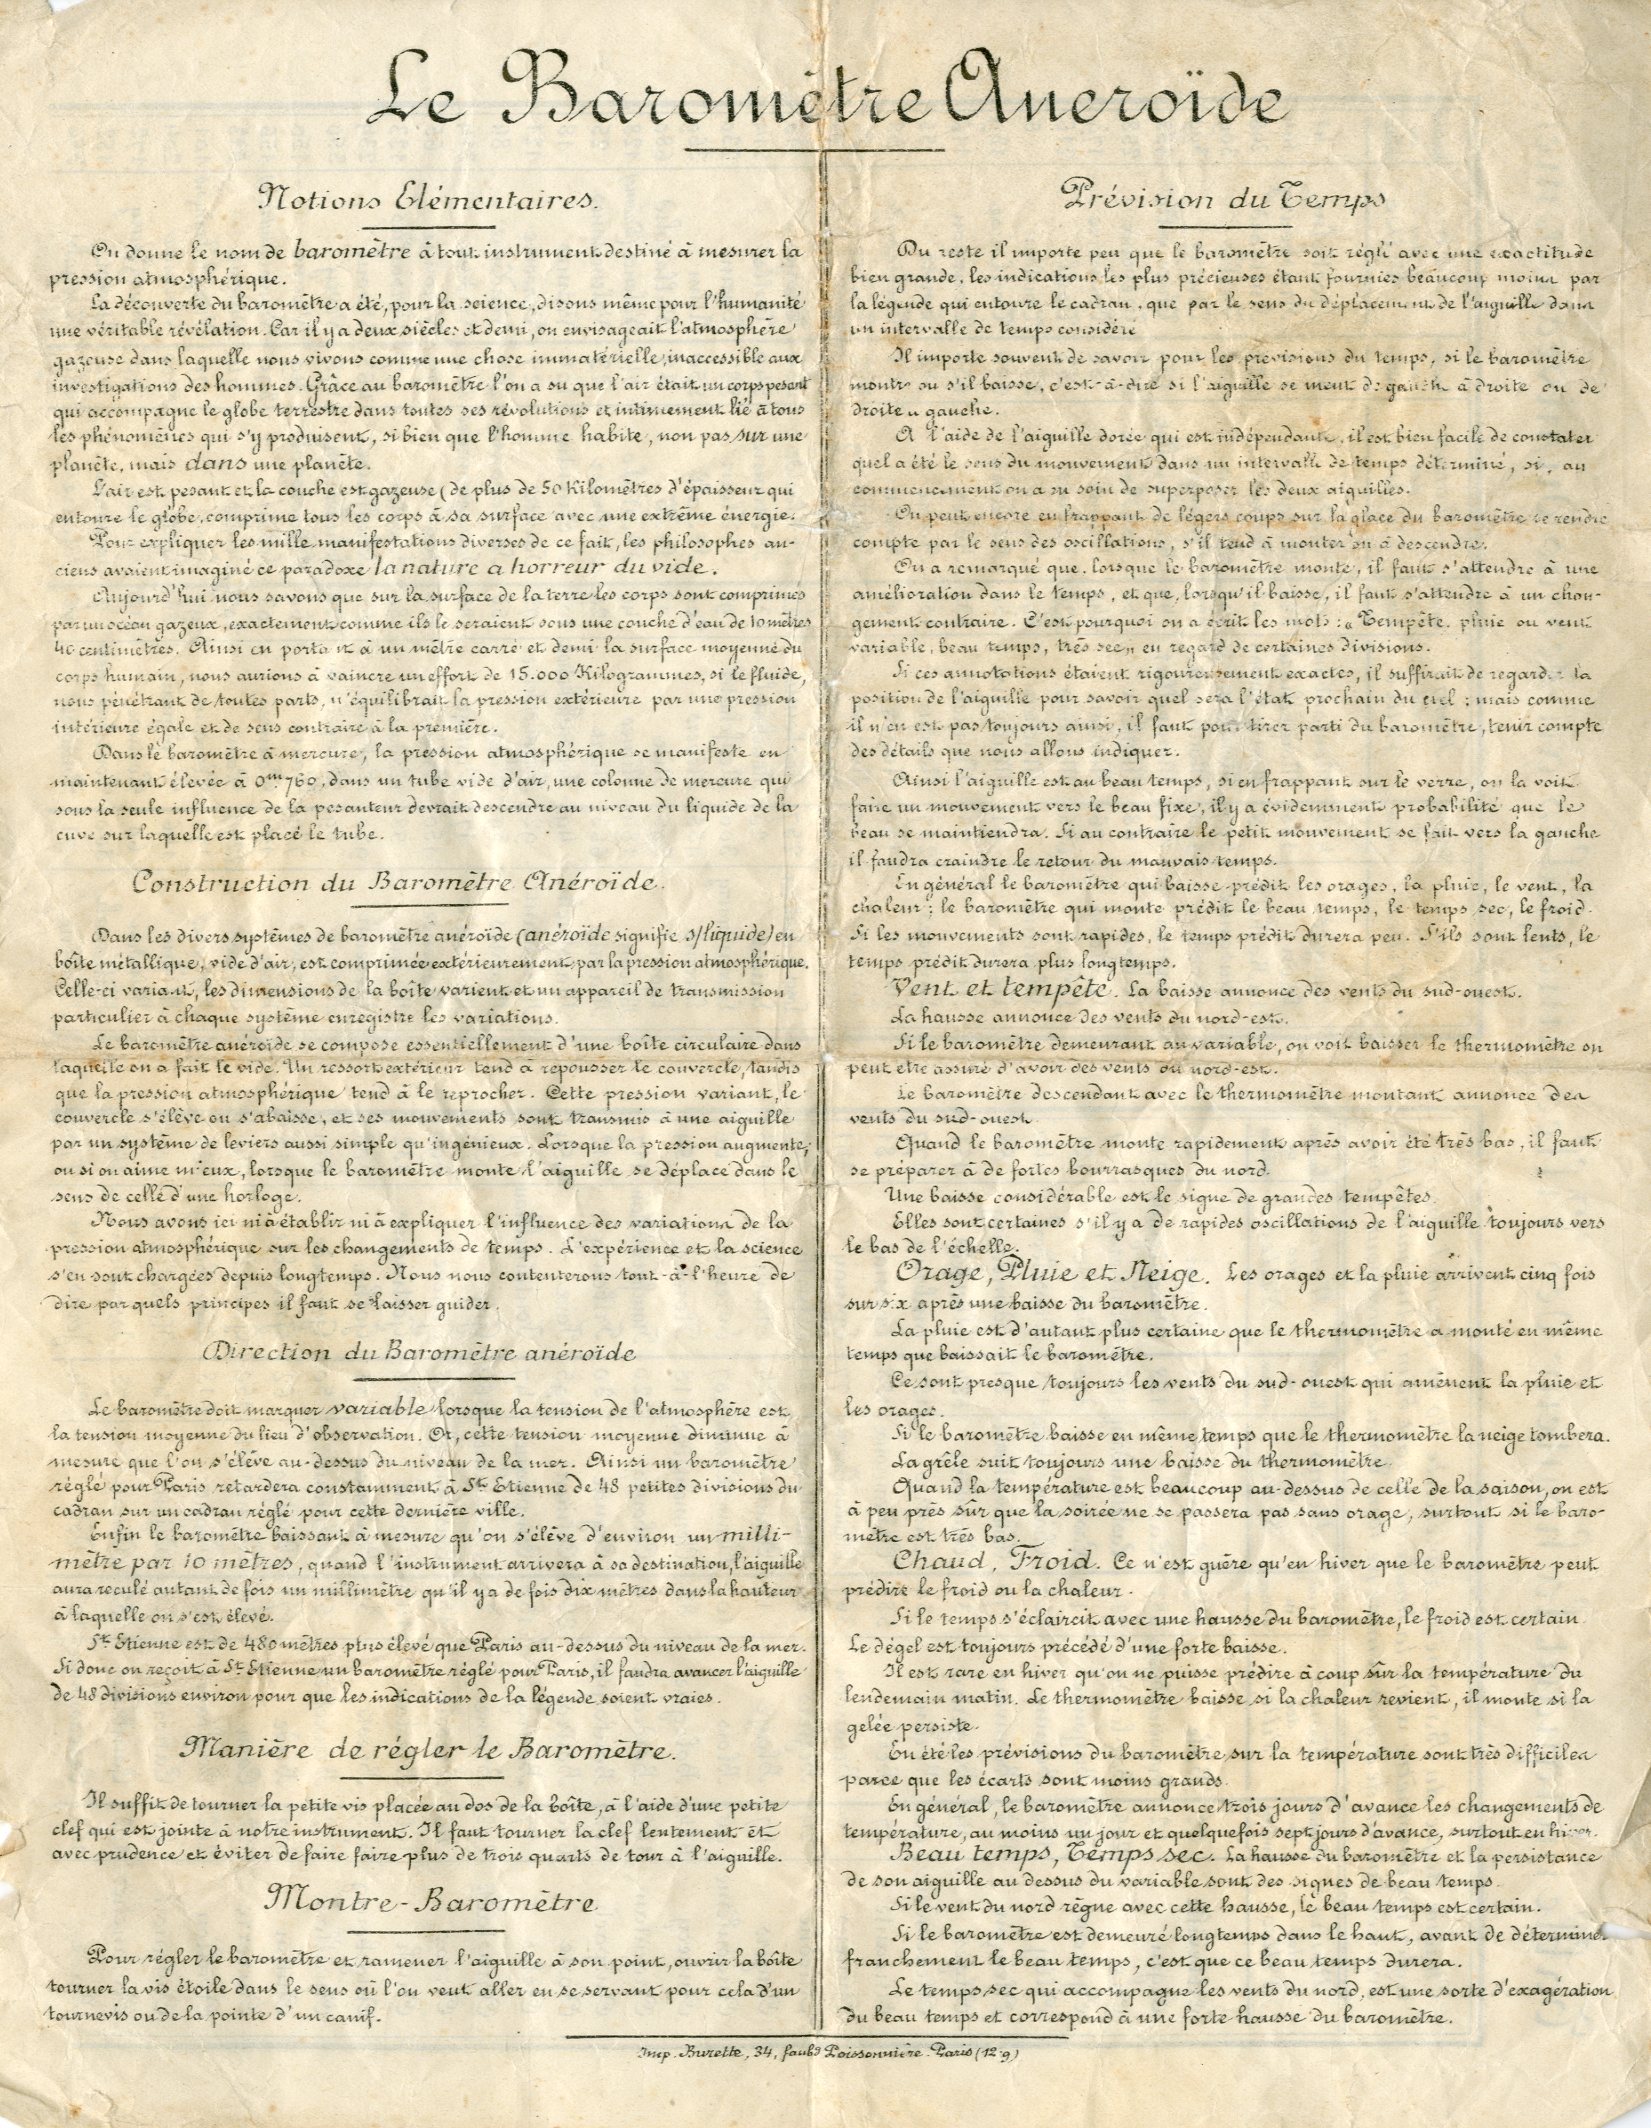 Le Baromètre Aneroïde
Notions Elémentaires.
On donne le nom de baromètre à tout instrument destiné à mesurer la
pression atmosphérique.
La découverte du baromètre a été, pour la science, disons même pour l'humanité
une véritable révélation. Car il y a deux siècles et demi, on envisageait l'atmosphère
gazeuse dans laquelle nous vivons comme une chose immatérielle, inaccessible aux
investigations des hommes. Grâce au baromètre l'on a su que l'air était un corps pesant
qui accompagne le globe terrestre dans toutes ses révolutions et intimement lié à tous
les phénomènes qui s'y produisent, si bien que l'homme habite, non pas sur une
planète, mais dans une planète.
L'air est pesant et la couche est gazeuse (de plus de 50 Kilomètres d'épaisseur qui
entoure le globe, comprime tous les corps à sa surface avec une extrême énergie.
Pour expliquer les mille manifestations diverses de ce fait, les philosophes an-
ciens avaient imaginé ce paradoxe la nature a horreur du vide.
Aujourd'hui nous savons que sur la surface de la terre les corps sont comprimés
par un océan gazeux, exactement comme ils le seraient sous une couche d'eau de 10 mètres
40 centimètres. Ainsi en portant à un mètre carré et demi la surface moyenne du
corps humain, nous aurions à vaincre un effort de 15.000 Kilogrammes, si le fluide,
nous pénétrant de toutes parts, n'équilibrait la pression extérieure par une pression
intérieure égale et de sens contraire à la première.
Dans le baromètre à mercure, la pression atmosphérique se manifeste en
maintenant élevée à 0m,760, dans un tube vide d'air, une colonne de mercure qui
sous la seule influence de la pesanteur devrait descendre au niveau du liquide de la
cuve sur laquelle est placé le tube.
Construction du Baromètre Anéroïde.
Dans les divers systèmes de baromètre anéroïde (anéroïde signifie s/liquide) en
boîte métallique, vide d'air, est comprimée extérieurement par la pression atmosphérique.
Celle-ci variant, les dimensions de la boîte varient et un appareil de transmission
particulier à chaque système enregistre les variations.
Le baromètre anéroïde se compose essentiellement d'une boîte circulaire dans
laquelle on a fait le vide. Un ressort extérieur tend à repousser le couvercle, tandis
que la pression atmosphérique tend à le reprocher. Cette pression variant, le
couvercle s'élève ou s'abaisse, et ses mouvements sont transmis à une aiguille
par un système de leviers aussi simple qu'ingénieux. Lorsque la pression augmente,
ou si on aime mieux, lorsque le baromètre monte l'aiguille se déplace dans le
sens de celle d'une horloge.
Nous avons ici ni à établir ni à expliquer l'influence des variations de la
pression atmosphérique sur les changements de temps. L'expérience et la science
s'en sont chargées depuis longtemps. Nous nous contenterons tout-à-l'heure de
dire par quels principes il faut se laisser guider.
Direction du Baromètre anéroïde
Le baromètre doit marquer variable lorsque la tension de l'atmosphère est
la tension moyenne du lieu d'observation. Or, cette tension moyenne diminue à
mesure que l'on s'élève au-dessus du niveau de la mer. Ainsi un baromètre
réglé pour Paris retardera constamment à St Etienne de 48 petites divisions du
cadran sur un cadran réglé pour cette dernière ville.
Enfin le baromètre baissant à mesure qu'on s'élève d'environ un milli-
mètre par 10 mètres, quand l'instrument arrivera à sa destination, l'aiguille
aura reculé autant de fois un millimètre qu'il y a de fois dix mètres dans la hauteur
à laquelle on s'est élevé.
St Etienne est de 480 mètres plus élevé que Paris au-dessus du niveau de la mer.
Si donc on reçoit à St Etienne un baromètre réglé pour Paris, il faudra avancer l'aiguille
de 48 divisions environ pour que les indications de la légende soient vraies.
Manière de régler le Baromètre.
Il suffit de tourner la petite vis placée au dos de la boîte, à l'aide d'une petite
clef qui est jointe à notre instrument. Il faut tourner la clef lentement et
avec prudence et éviter de faire faire plus de trois quarts de tour à l'aiguille.
Montre-Baromètre
Pour régler le baromètre et ramener l'aiguille à son point, ouvrir la boîte
tourner la vis étoile dans le sens où l'on veut aller en se servant pour cela d'un
tournevis ou de la pointe d'un canif.
Prévision du Temps
Du reste il importe peu que le baromètre soit réglé avec une exactitude
bien grande, les indications les plus précieuses étant fournies beaucoup moins par
la légende qui entoure le cadran, que par le sens du déplacement de l'aiguille dans
un intervalle de temps considéré
Il importe souvent de savoir pour les prévisions du temps, si le baromètre
monte ou s'il baisse, c'est-à-dire si l'aiguille se meut de gauche à droite ou de
droite à gauche.
A l'aide de l'aiguille dorée qui est indépendante, il est bien facile de constater
quel a été le sens du mouvement dans un intervalle de temps déterminé, si, au
commencement on a eu soin de superposer les deux aiguilles.
On peut encore en frappant de légers coups sur la glace du baromètre se rendre
compte par le sens des oscillations, s'il tend à monter ou à descendre.
On a remarqué que, lorsque le baromètre monte, il faut s'attendre à une
amélioration dans le temps, et que, lorsqu'il baisse, il faut s'attendre à un chan-
gement contraire. C'est pourquoi on a écrit les mots: "Tempête, pluie ou vent
variable, beau temps, très sec" en regard de certaines divisions.
Si ces annotations étaient rigoureusement exactes, il suffirait de regarder la
position de l'aiguille pour savoir quel sera l'état prochain du ciel; mais comme
il n'en est pas toujours ainsi, il faut pour tirer parti du baromètre, tenir compte
des détails que nous allons indiquer.
Ainsi l'aiguille est au beau temps, si en frappant sur le verre, on la voit
faire un mouvement vers le beau fixe, il y a évidemment probabilité que le
beau se maintiendra. Si au contraire le petit mouvement se fait vers la gauche
il faudra craindre le retour du mauvais temps.
En général le baromètre qui baisse prédit les orages, la pluie, le vent, la
chaleur; le baromètre qui monte prédit le beau temps, le temps sec, le froid.
Si les mouvements sont rapides, le temps prédit durera peu. S'ils sont lents, le
temps prédit durera plus longtemps.
Vent et tempête. La baisse annonce des vents du sud-ouest.
La hausse annonce des vents du nord-est.
Si le baromètre demeurant au variable, on voit baisser le thermomètre on
peut être assuré d'avoir des vents du nord-est.
Le baromètre descendant avec le thermomètre montant annonce des
vents du sud-ouest.
Quand le baromètre monte rapidement après avoir été très bas, il faut
se préparer à de fortes bourrasques du nord.
Une baisse considérable est le signe de grandes tempêtes.
Elles sont certaines s'il y a de rapides oscillations de l'aiguille toujours vers
le bas de l'échelle.
Orage, Pluie et Neige. Les orages et la pluie arrivent cinq fois
sur six après une baisse du baromètre.
La pluie est d'autant plus certaine que le thermomètre a monté en même
temps que baissait le baromètre.
Ce sont presque toujours les vents du sud-ouest qui amènent la pluie et
les orages.
Si le baromètre baisse en même temps que le thermomètre la neige tombera.
La grêle suit toujours une baisse du thermomètre.
Quand la température est beaucoup au-dessus de celle de la saison, on est
à peu près sûr que la soirée ne se passera pas sans orage, surtout si le baro-
mètre est très bas.
Chaud, Froid. Ce n'est guère qu'en hiver que le baromètre peut
prédire le froid ou la chaleur.
Si le temps s'éclaircit avec une hausse du baromètre, le froid est certain
Le dégel est toujours précédé d'une forte baisse.
Il est rare en hiver qu'on ne puisse prédire à coup sûr la température du
lendemain matin. Le thermomètre baisse si la chaleur revient, il monte si la
gelée persiste.
En été les prévisions du baromètre sur la température sont très difficiles
parce que les écarts sont moins grands.
En général, le baromètre annonce trois jours d'avance les changements de
température, au moins un jour et quelquefois sept jours d'avance, surtout en hiver.
Beau temps, Temps sec. La hausse du baromètre et la persistance
de son aiguille au dessus du variable sont des signes de beau temps.
Si le vent du nord règne avec cette hausse, le beau temps est certain.
Si le baromètre est demeuré longtemps dans le haut, avant de déterminer
franchement le beau temps, c'est que ce beau temps durera.
Le temps sec qui accompagne les vents du nord, est une sorte d'exagération
du beau temps et correspond à une forte hausse du baromètre.
Imp. Burette, 34, faubg Poissonnière. Paris (12-9)